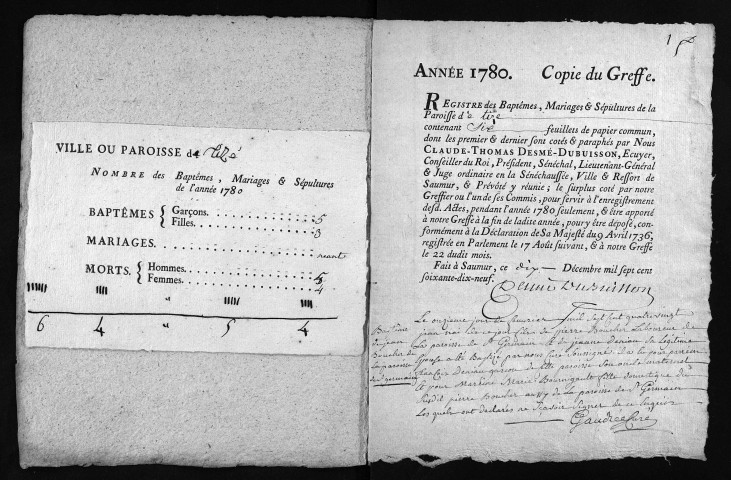 VILLE OU PAROISSE de
NOMBRE des Baptêmes, Mariages & Sépultures
de l'année 1780
BAPTÊMES { Garçons. . . . . . . . . . 5
Filles. . . . . . . . . . . 3
MARIAGES. . . . . . . . . . neant
MORTS. { Hommes. . . . . . . . . . 5
Femmes. . . . . . . . . . 4
6 4 " 5 4
ANNÉE 1780. Copie du Greffe.
REGISTRE des Baptêmes, Mariages & Sépultures de la
Paroisse de
contenant Six feuillets de papier commun,
dont les premier & dernier sont cotés & paraphés par Nous
CLAUDE-THOMAS DESMÉ-DUBUISSON, Ecuyer,
Conseiller du Roi, Président, Sénéchal, Lieutenant-Général
& Juge ordinaire en la Sénéchaussée, Ville & Ressort de
Saumur, & Prévôté y réunie; le surplus coté par notre
Greffier ou l'un de ses Commis, pour servir à l'enregistrement
desd. Actes, pendant l'année 1780 seulement, & être apporté
à notre Greffe à la fin de ladite année, pour y être déposé, con-
formément à la Déclaration de Sa Majesté du 9 Avril 1736,
registrée en Parlement le 17 Août suivant, & à notre Greffe
le 22 dudit mois.
Fait à Saumur, ce dix Décembre mil sept cent
soixante-dix-neuf.
Desmé Dubuisson
Baptême
de jean
Boucher de
La paroisse
de St germain
Le onzieme jour de fevrier mil sept cent quatrevingt
jean né ce jour fils de pierre Boucher Laboureur de
La paroisse de St Germain & de jeanne Deniau sa Legitime
Epouse a été Baptisé par nous Curé soussigné a eu pour parrein
françois Deniau garson de cette paroisse son oncle maternel
& pour Mareine Marie Bourigault fille domestique du
susdit pierre Boucher aussy de la paroisse de St Germain
Les quels ont declarés ne sçavoir signer de ce Enquis
Gaudice Curé